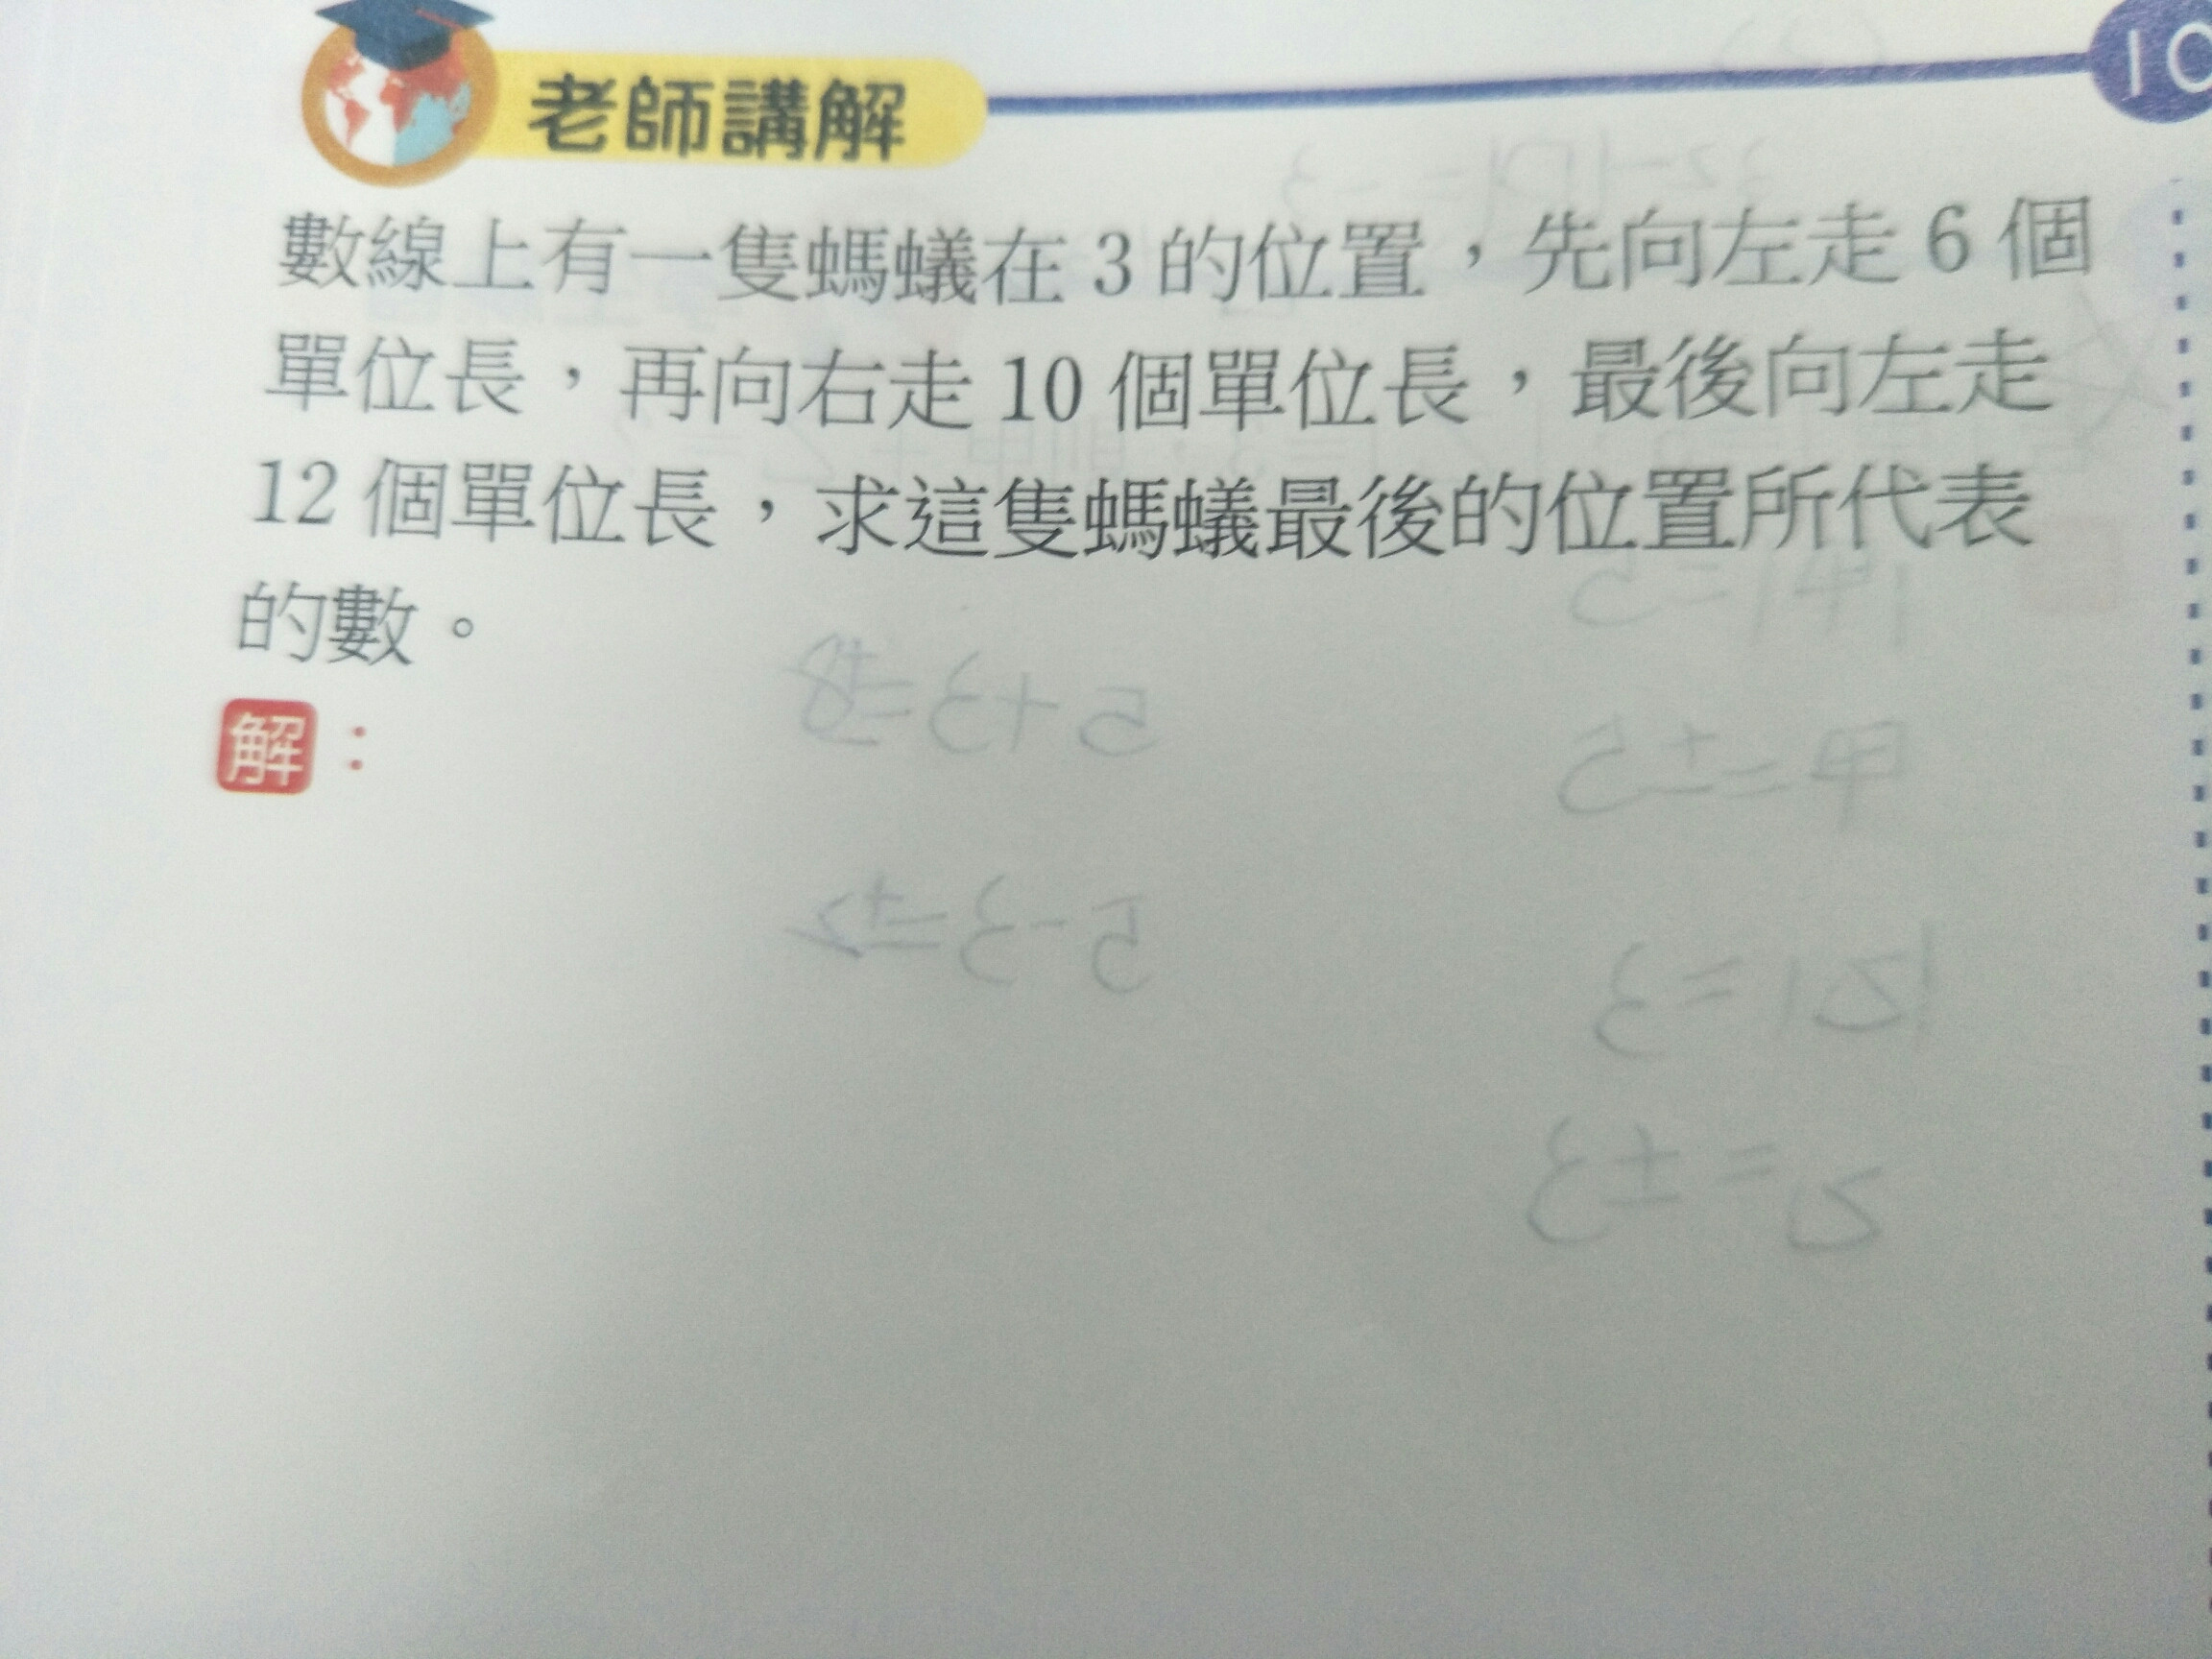 老師講解
10
數線上有一隻螞蟻在 3 的位置，先向左走 6 個
單位長，再向右走 10 個單位長，最後向左走
12 個單位長，求這隻螞蟻最後的位置所代表
的數。
解：